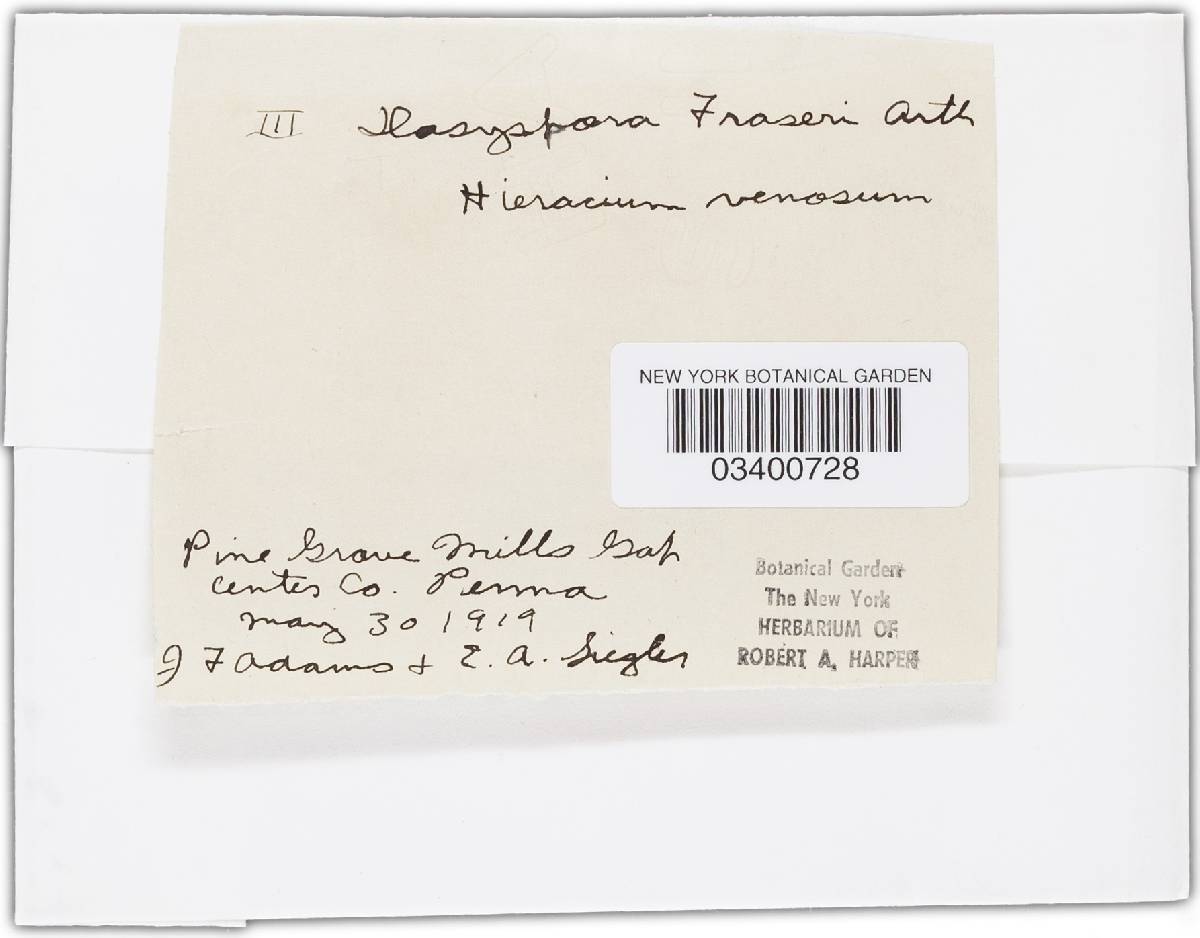 III Dasyspora Fraseri Arth
Hieracium venosum
NEW YORK BOTANICAL GARDEN
03400728
Pine Grove Mills Gap
Center Co. Penna
May 30 1919
J F Adams + E. A. Siegler
Botanical Garden
The New York
HERBARIUM OF
ROBERT A. HARPER